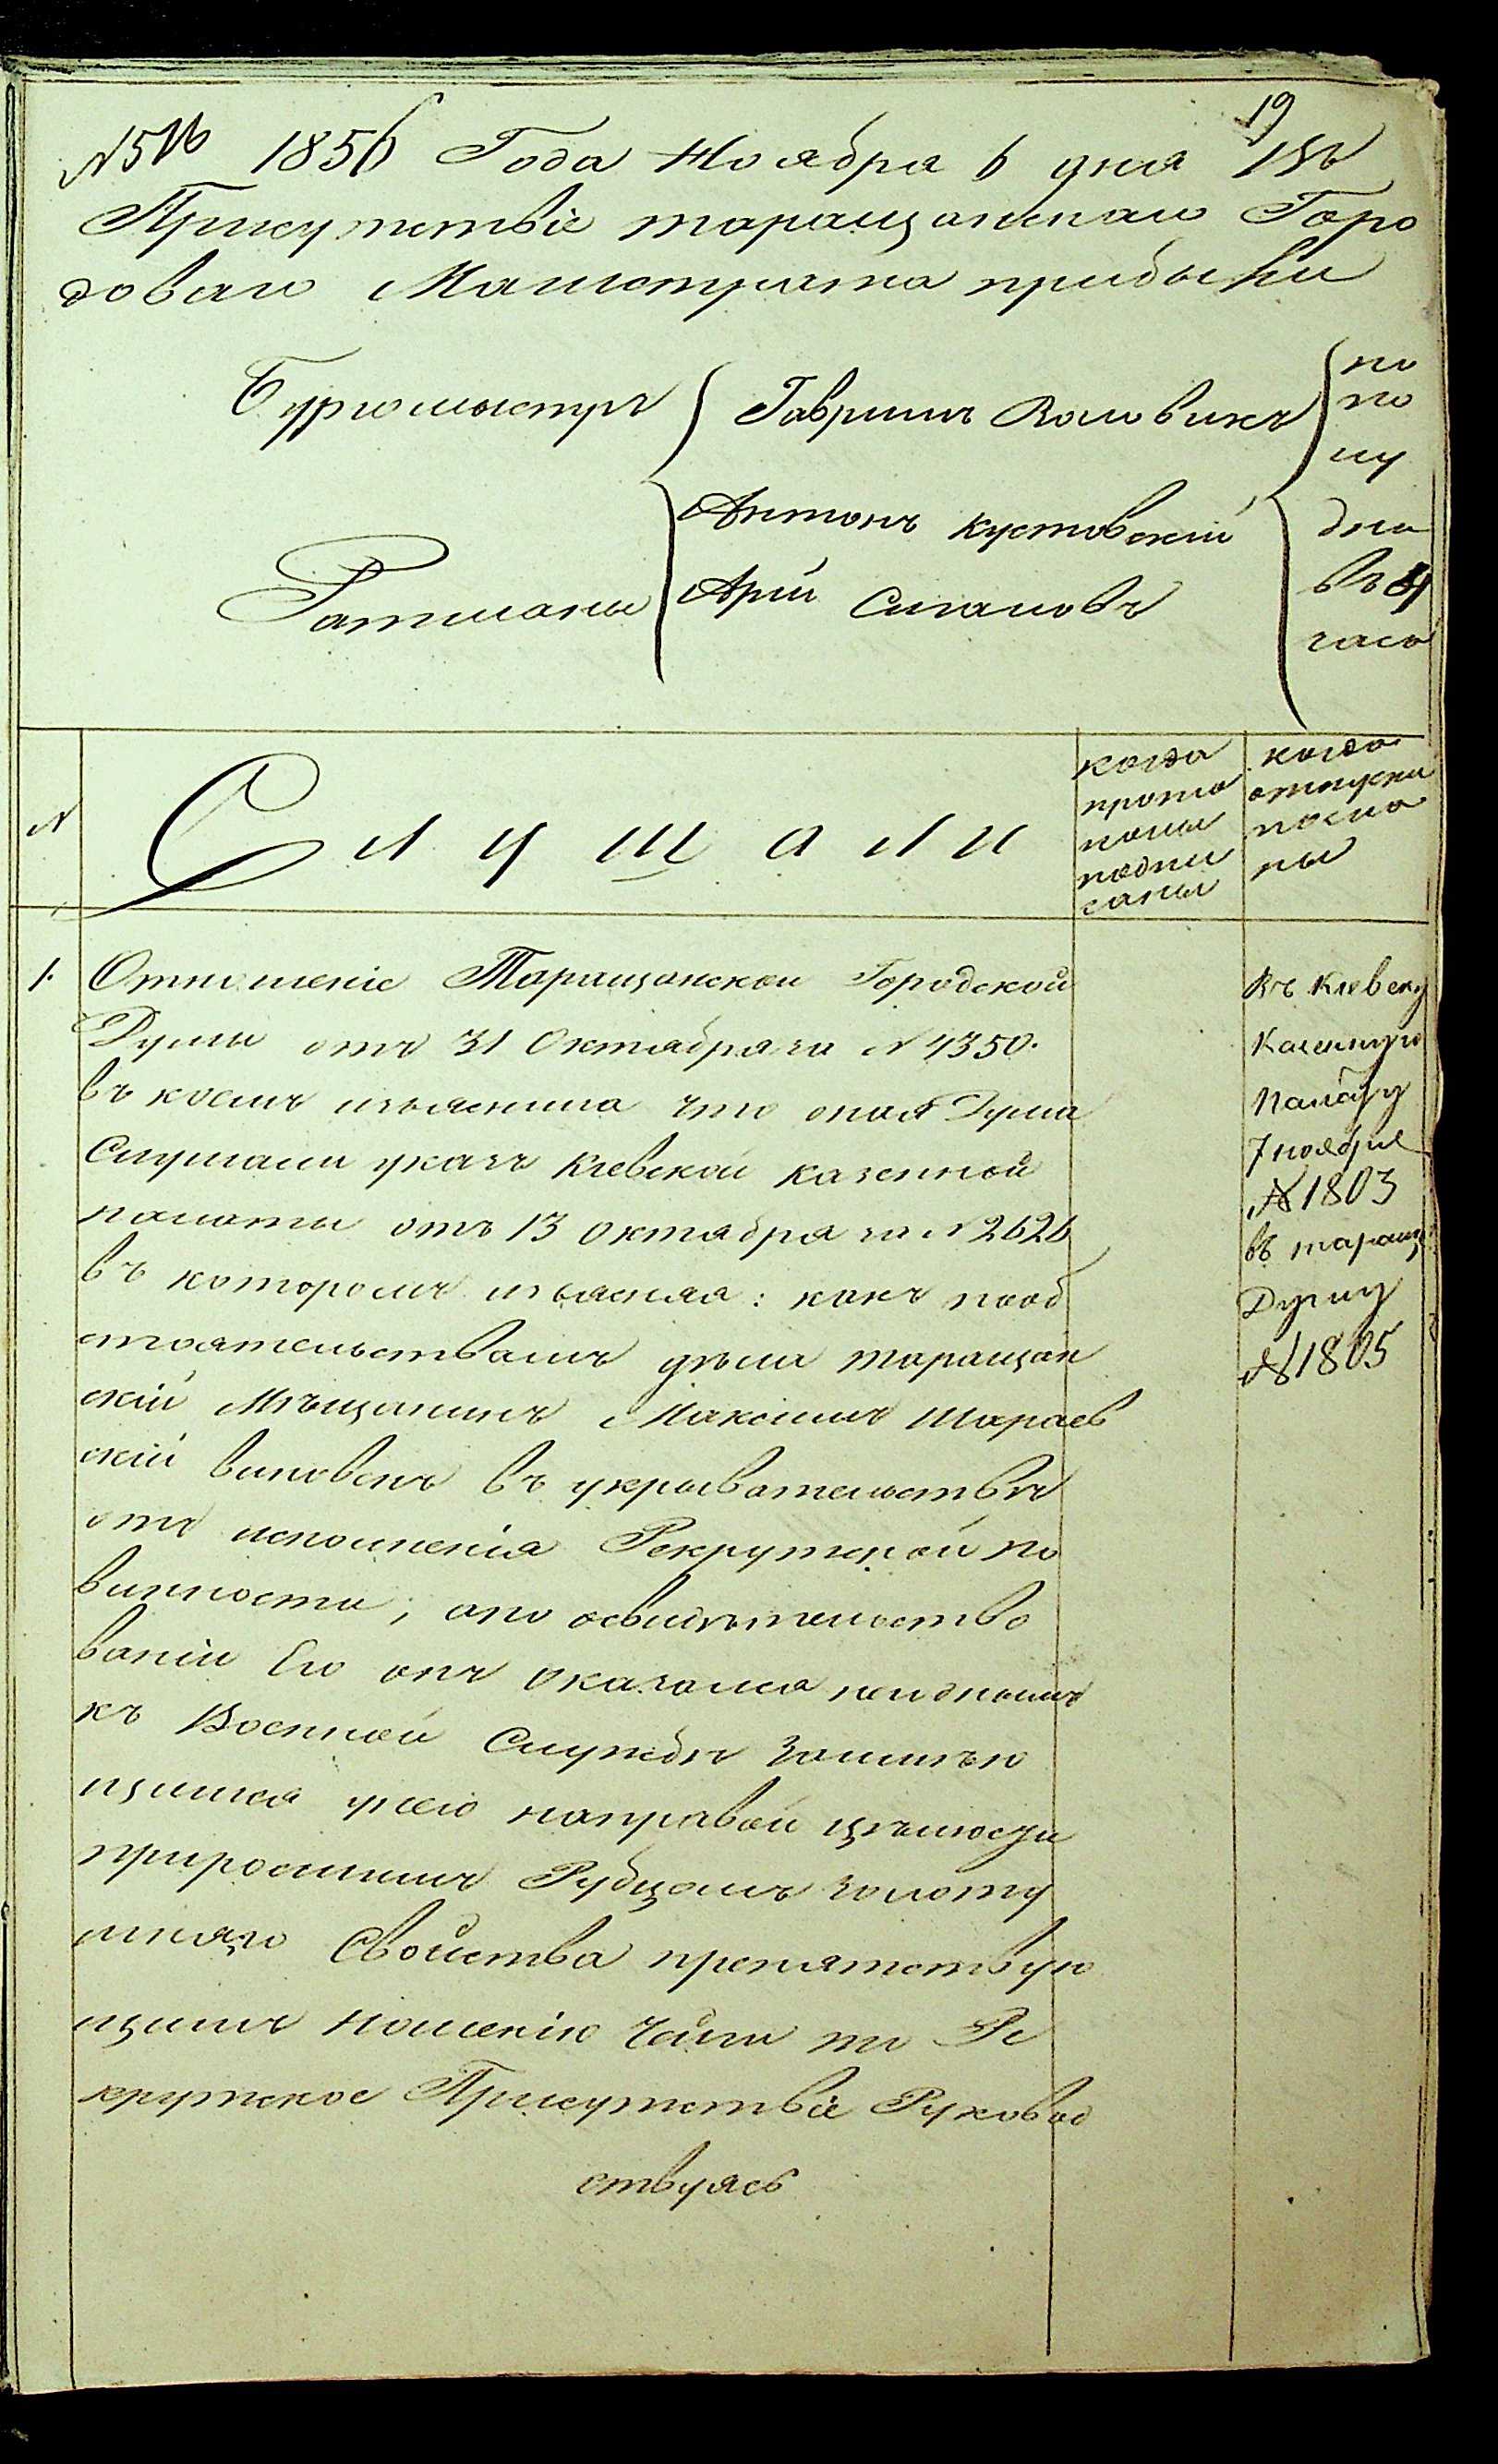 19
1856 Года Ноября 6 дня Въ
Присутствіе таращанскаго Горо
доваго Магистрата прибыли
Бургомыстръ
Гавриилъ Воловикъ
по
по
лу
Антонъ Кустовскій
дни
въ
часа
Ратманы
Арій
N
Слушали
когда
прото
колы
подпи
саны
когда
отпуски
посла
ны
1.
Отношеніе Таращанской Городской
Думы отъ 31 Октября за N 4350.
въ коемъ изъяснила что оная Дума
Слушали указъ Кіевской казенной
палаты отъ 13 октября за N 2626
въ которомъ изъясняя: какъ пооб
стоятельствамъ дѣла таращан
скій Мѣщанинъ Максимъ Шараев
скій виновенъ въ укрывательствѣ
отъ исполненія Рекрутской по
винности, апо освидѣтельство
ваніи Его онъ оказался негоднымъ
къ Военной Службѣ Заимѣю
щимся унего направой щѣлюсти
приросшимъ Рубцомъ золоту
шнаго Свойства препятствую
щимъ ношенію то Ре
крутское Присутствіе Руковод
ствуясь
Въ Кіевску
Казенную
Палату
7 ноября
№ 1803
въ таращ
Думу
№ 1805